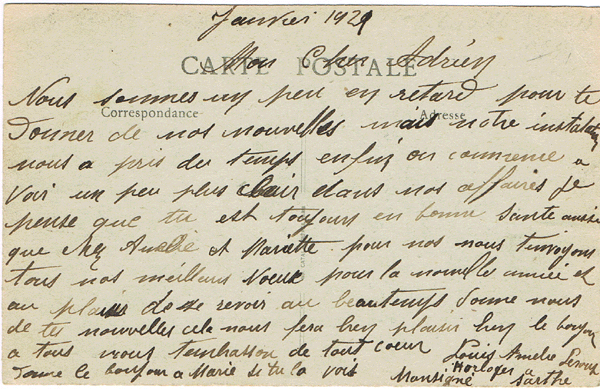 Janvier 1929
Mon Cher Adrien
CARTE POSTALE
Nous sommes un peu en retard pour te
Correspondance Adresse
Donner de nos nouvelles mais notre
nous a pris du temps enfin on commence a
voir un peu plus clair dans nos affaires je
pense que tu est toujours en bonne santé aussi
que chez Amelie et Mariette pour nos nous t'envoyons
tous nos meilleurs Voeux pour la nouvelle année et
au plaisir de te revoir au beau temps donne nous
de tes nouvelles cela nous fera bien plaisir bien le bonjour
a tous nous t'embrasson de tout coeur Louis Amelie
Horloger a
donne le bonjour a Marie si tu la vois Mansigné Sarthe